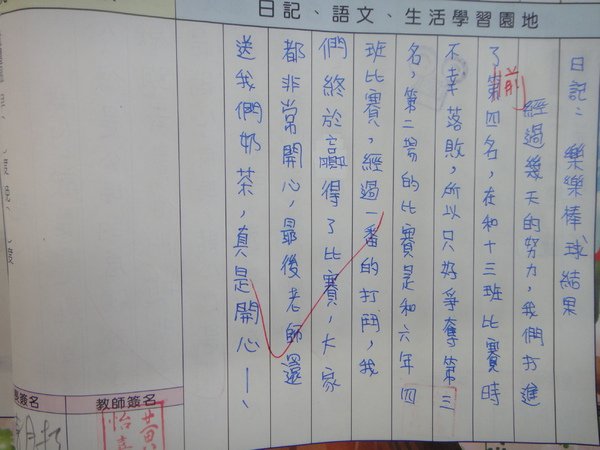 日記、語文、生活學習園地
日記：樂樂棒球結果
經過幾天的努力，我們打進
了第四名，在和十三班比賽時
前
不幸落敗，所以只好爭奪第三
名，第二場的比賽是和六年四
班比賽，經過一番的打鬥，我
們終於贏得了比賽，大家
都非常開心，最後老師還
送我們奶茶，真是開心！、
教師簽名
簽名
黃
怡